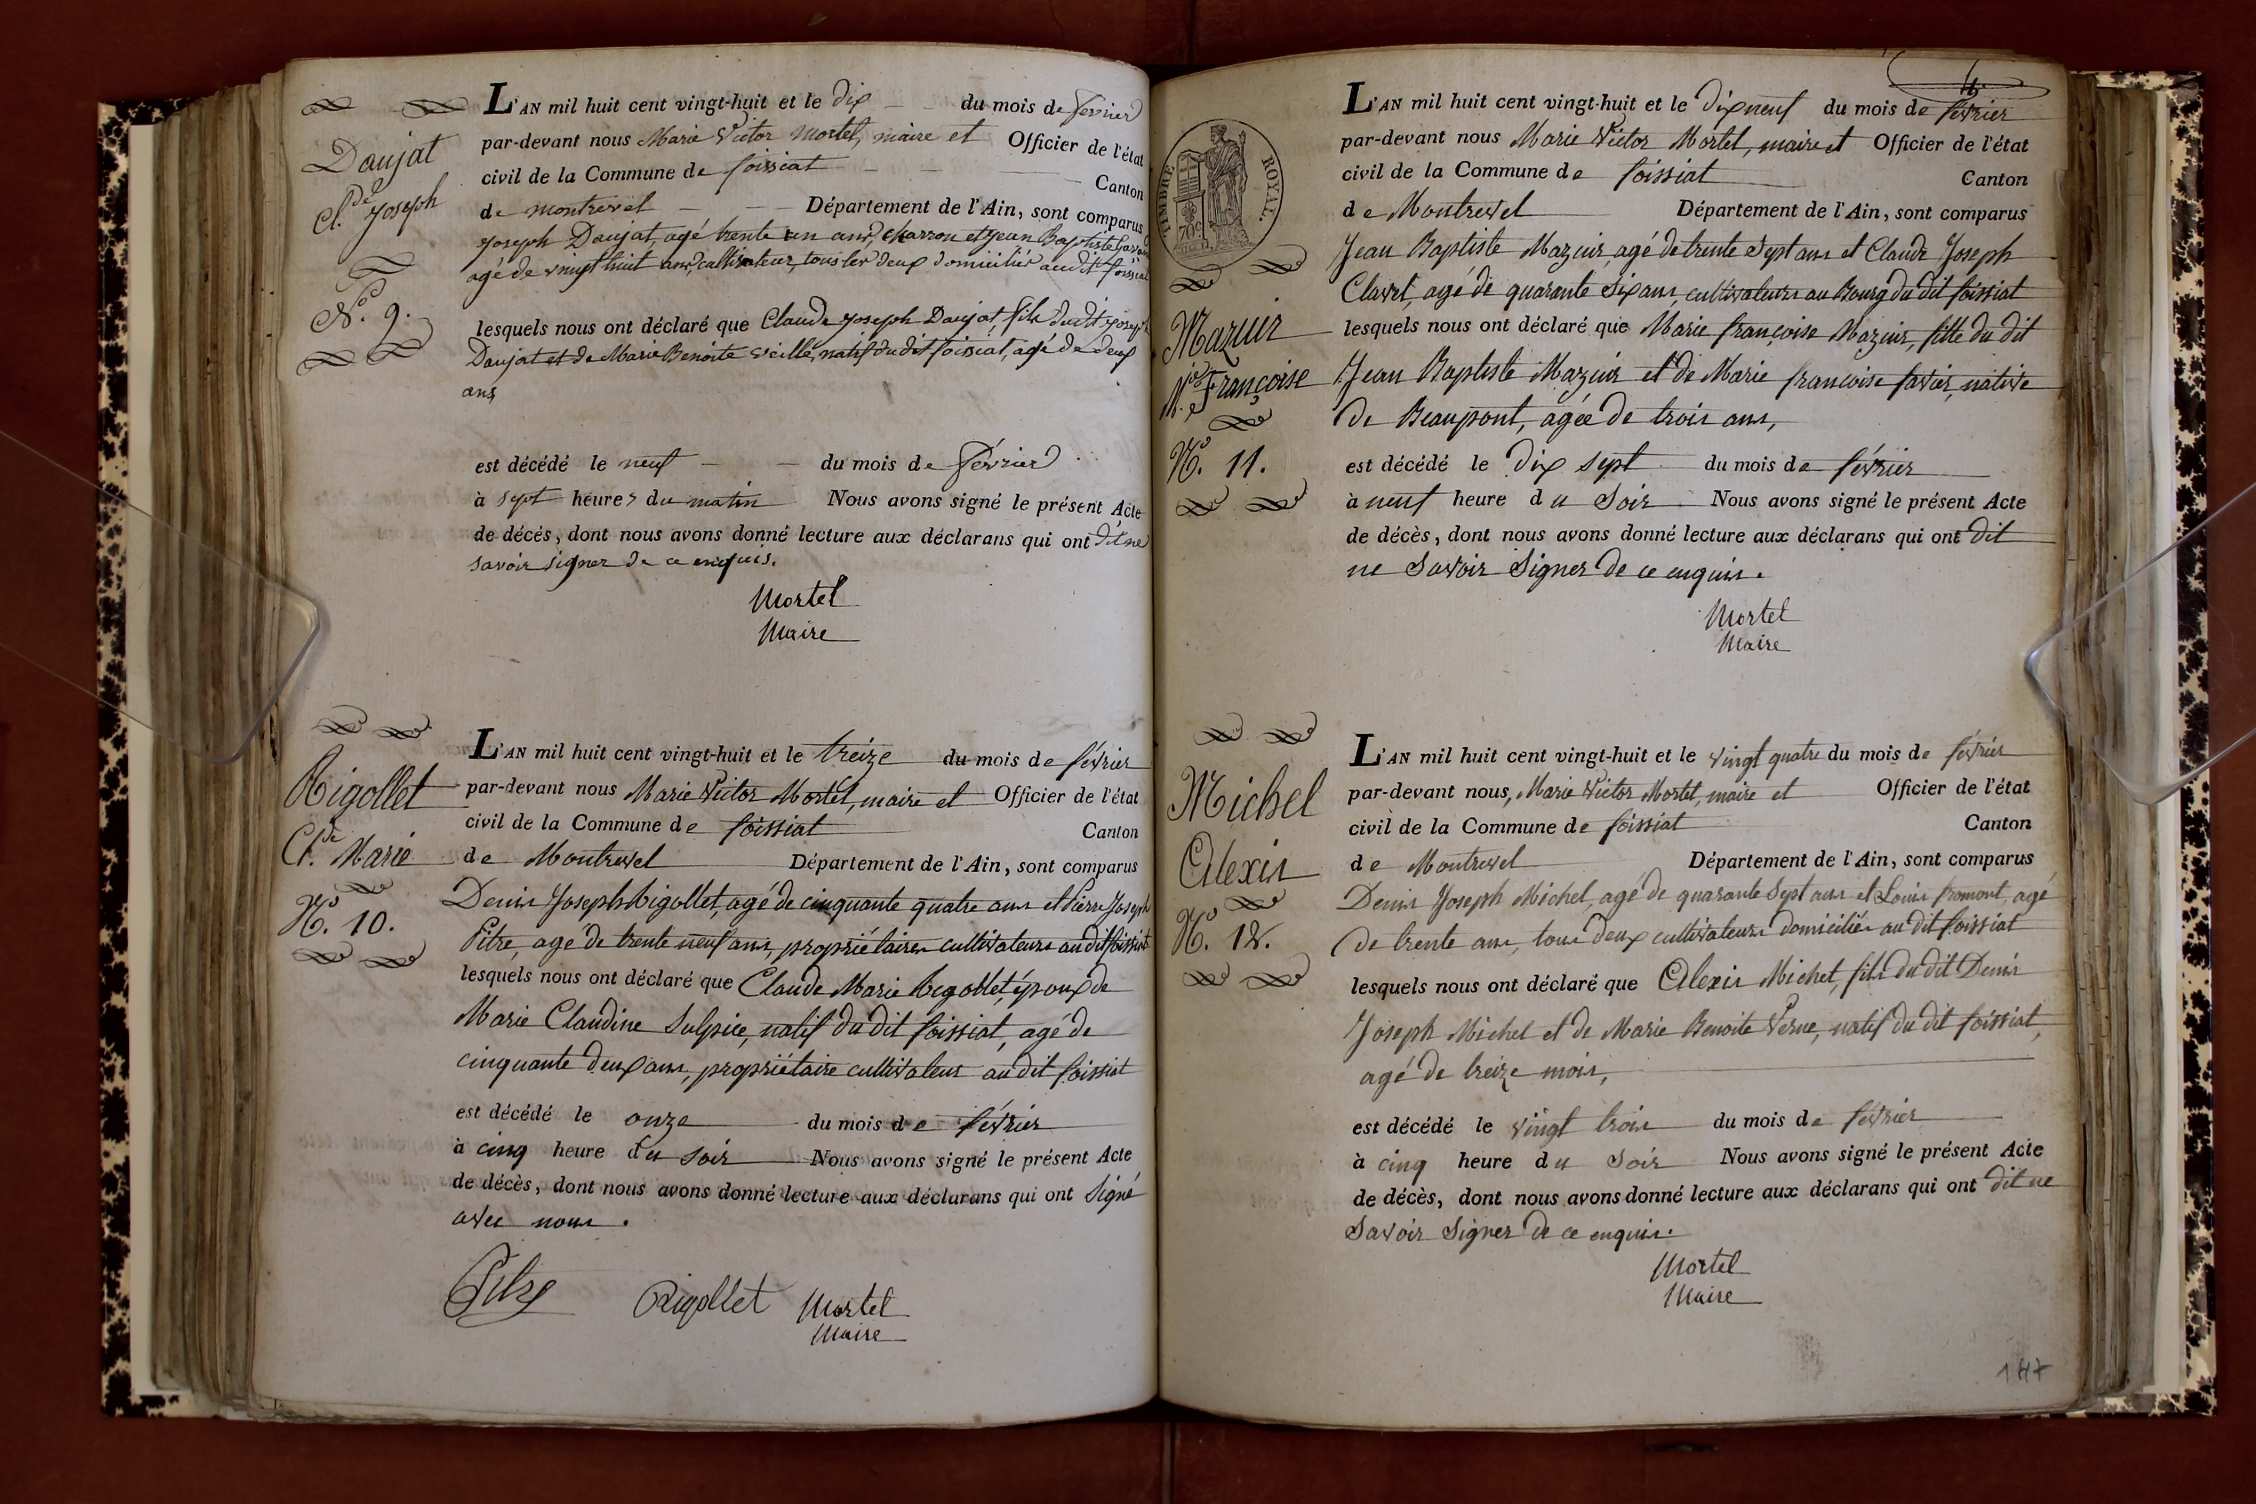 Daujat
Cl.de Joseph
N.o 9.
L'AN mil huit cent vingt-huit et le dix du mois de février
par-devant nous Marie Victor Mortel, maire et Officier de l'état
civil de la Commune de foissiat Canton
de montrevel Département de l'Ain, sont comparus
Joseph Daujat, agé trente un ans, charron et Jean Baptiste
agé de vingt huit ans, cultivateur, tous les deux domiciliés audit foissiat
lesquels nous ont déclaré que Claude Joseph Daujat, fils dudit Joseph
Daujat et de Marie Benoite Veille, natif dudit foissiat, agé de deux
ans
est décédé le neuf du mois de février
à sept heures du matin Nous avons signé le présent Acte
de décès, dont nous avons donné lecture aux déclarans qui ont dit ne
savoir signer de ce enquis.
Mortel
Maire
Rigollet
Cl.de Marie
N.o 10.
L'AN mil huit cent vingt-huit et le treize du mois de février
par-devant nous Marie Victor Mortel, maire et Officier de l'état
civil de la Commune de foissiat Canton
de Montrevel Département de l'Ain, sont comparus
Denis Joseph Rigollet, agé de cinquante quatre ans et Pierre Joseph
Pitre, agé de trente neuf ans, propriétaires cultivateurs au dit foissiat
lesquels nous ont déclaré que Claude Marie Rigollet, époux de
Marie Claudine Sulpice, natif du dit foissiat, agé de
cinquante deux ans, propriétaire cultivateur au dit foissiat
est décédé le onze du mois de février
à cinq heure du soir Nous avons signé le présent Acte
de décès, dont nous avons donné lecture aux déclarans qui ont signé
avec nous.
Pitre Rigollet Mortel
Maire
TIMBRE ROYAL
70c
Mazuir
M.ie Françoise
N.o 11.
L'AN mil huit cent vingt-huit et le dix neuf du mois de février
par-devant nous Marie Victor Mortel, maire et Officier de l'état
civil de la Commune de foissiat Canton
de Montrevel Département de l'Ain, sont comparus
Jean Baptiste Mazuir, agé de trente Sept ans et Claude Joseph
Clavel, agé de quarante Six ans, cultivateurs au Bourg du dit foissiat
lesquels nous ont déclaré que Marie françoise Mazuir, fille du dit
Jean Baptiste Mazuir et de Marie francoise favier, native
de Beaupont, agée de trois ans,
est décédé le dix sept du mois de février
à neuf heure du Soir Nous avons signé le présent Acte
de décès, dont nous avons donné lecture aux déclarans qui ont dit
ne Savoir Signer de ce enquis.
Mortel
Maire
Michel
Alexis
N.o 12.
L'AN mil huit cent vingt-huit et le vingt quatre du mois de février
par-devant nous, Marie Victor Mortel, maire et Officier de l'état
civil de la Commune de foissiat Canton
de Montrevel Département de l'Ain, sont comparus
Denis Joseph Michel, agé de quarante Sept ans et Louis fromont, agé
de trente ans, tous deux cultivateurs domiciliés au dit foissiat
lesquels nous ont déclaré que Alexis Michel, fils du dit Denis
Joseph Michel et de Marie Benoite Verne, natif du dit foissiat,
agé de treize mois,
est décédé le vingt trois du mois de février
à cinq heure du Soir Nous avons signé le présent Acte
de décès, dont nous avons donné lecture aux déclarans qui ont dit ne
Savoir Signer de ce enquis.
Mortel
Maire
147